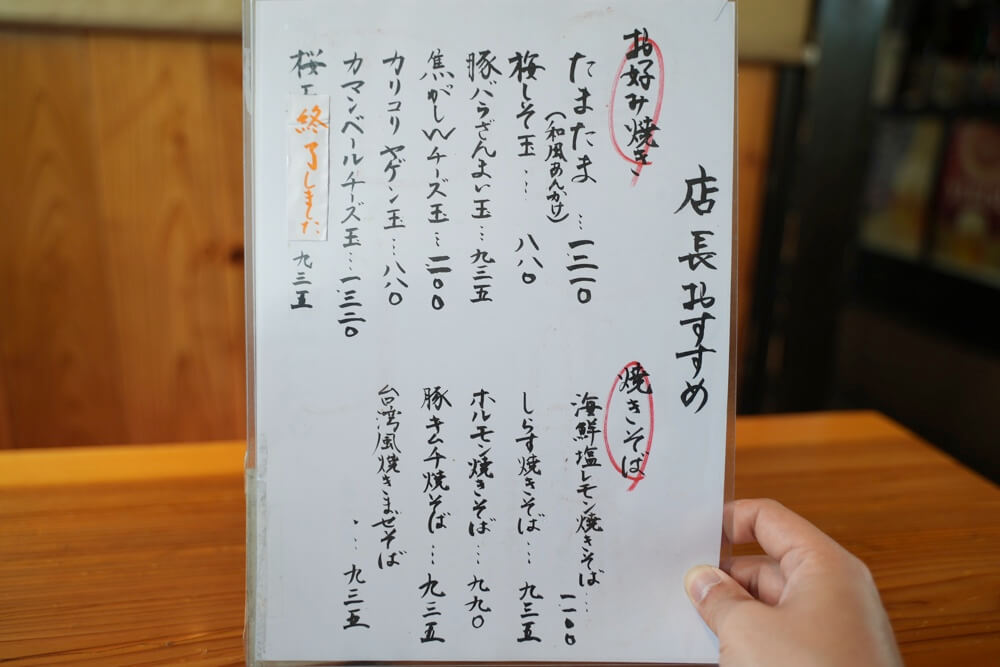 店長おすすめ
お好み焼き
たまたま…一二一〇
(和風あんかけ)
梅しそ玉…八八〇
豚バラざんまい玉…九三五
焦がしWチーズ玉…一一〇〇
カリコリヤゲン玉…八八〇
カマンベールチーズ玉…一三二〇
桜エ
終了しました
九三五
焼きそば
海鮮塩レモン焼きそば…一一〇〇
しらす焼きそば…九三五
ホルモン焼きそば…九九〇
豚キムチ焼そば…九三五
台湾風焼きまぜそば
…九三五